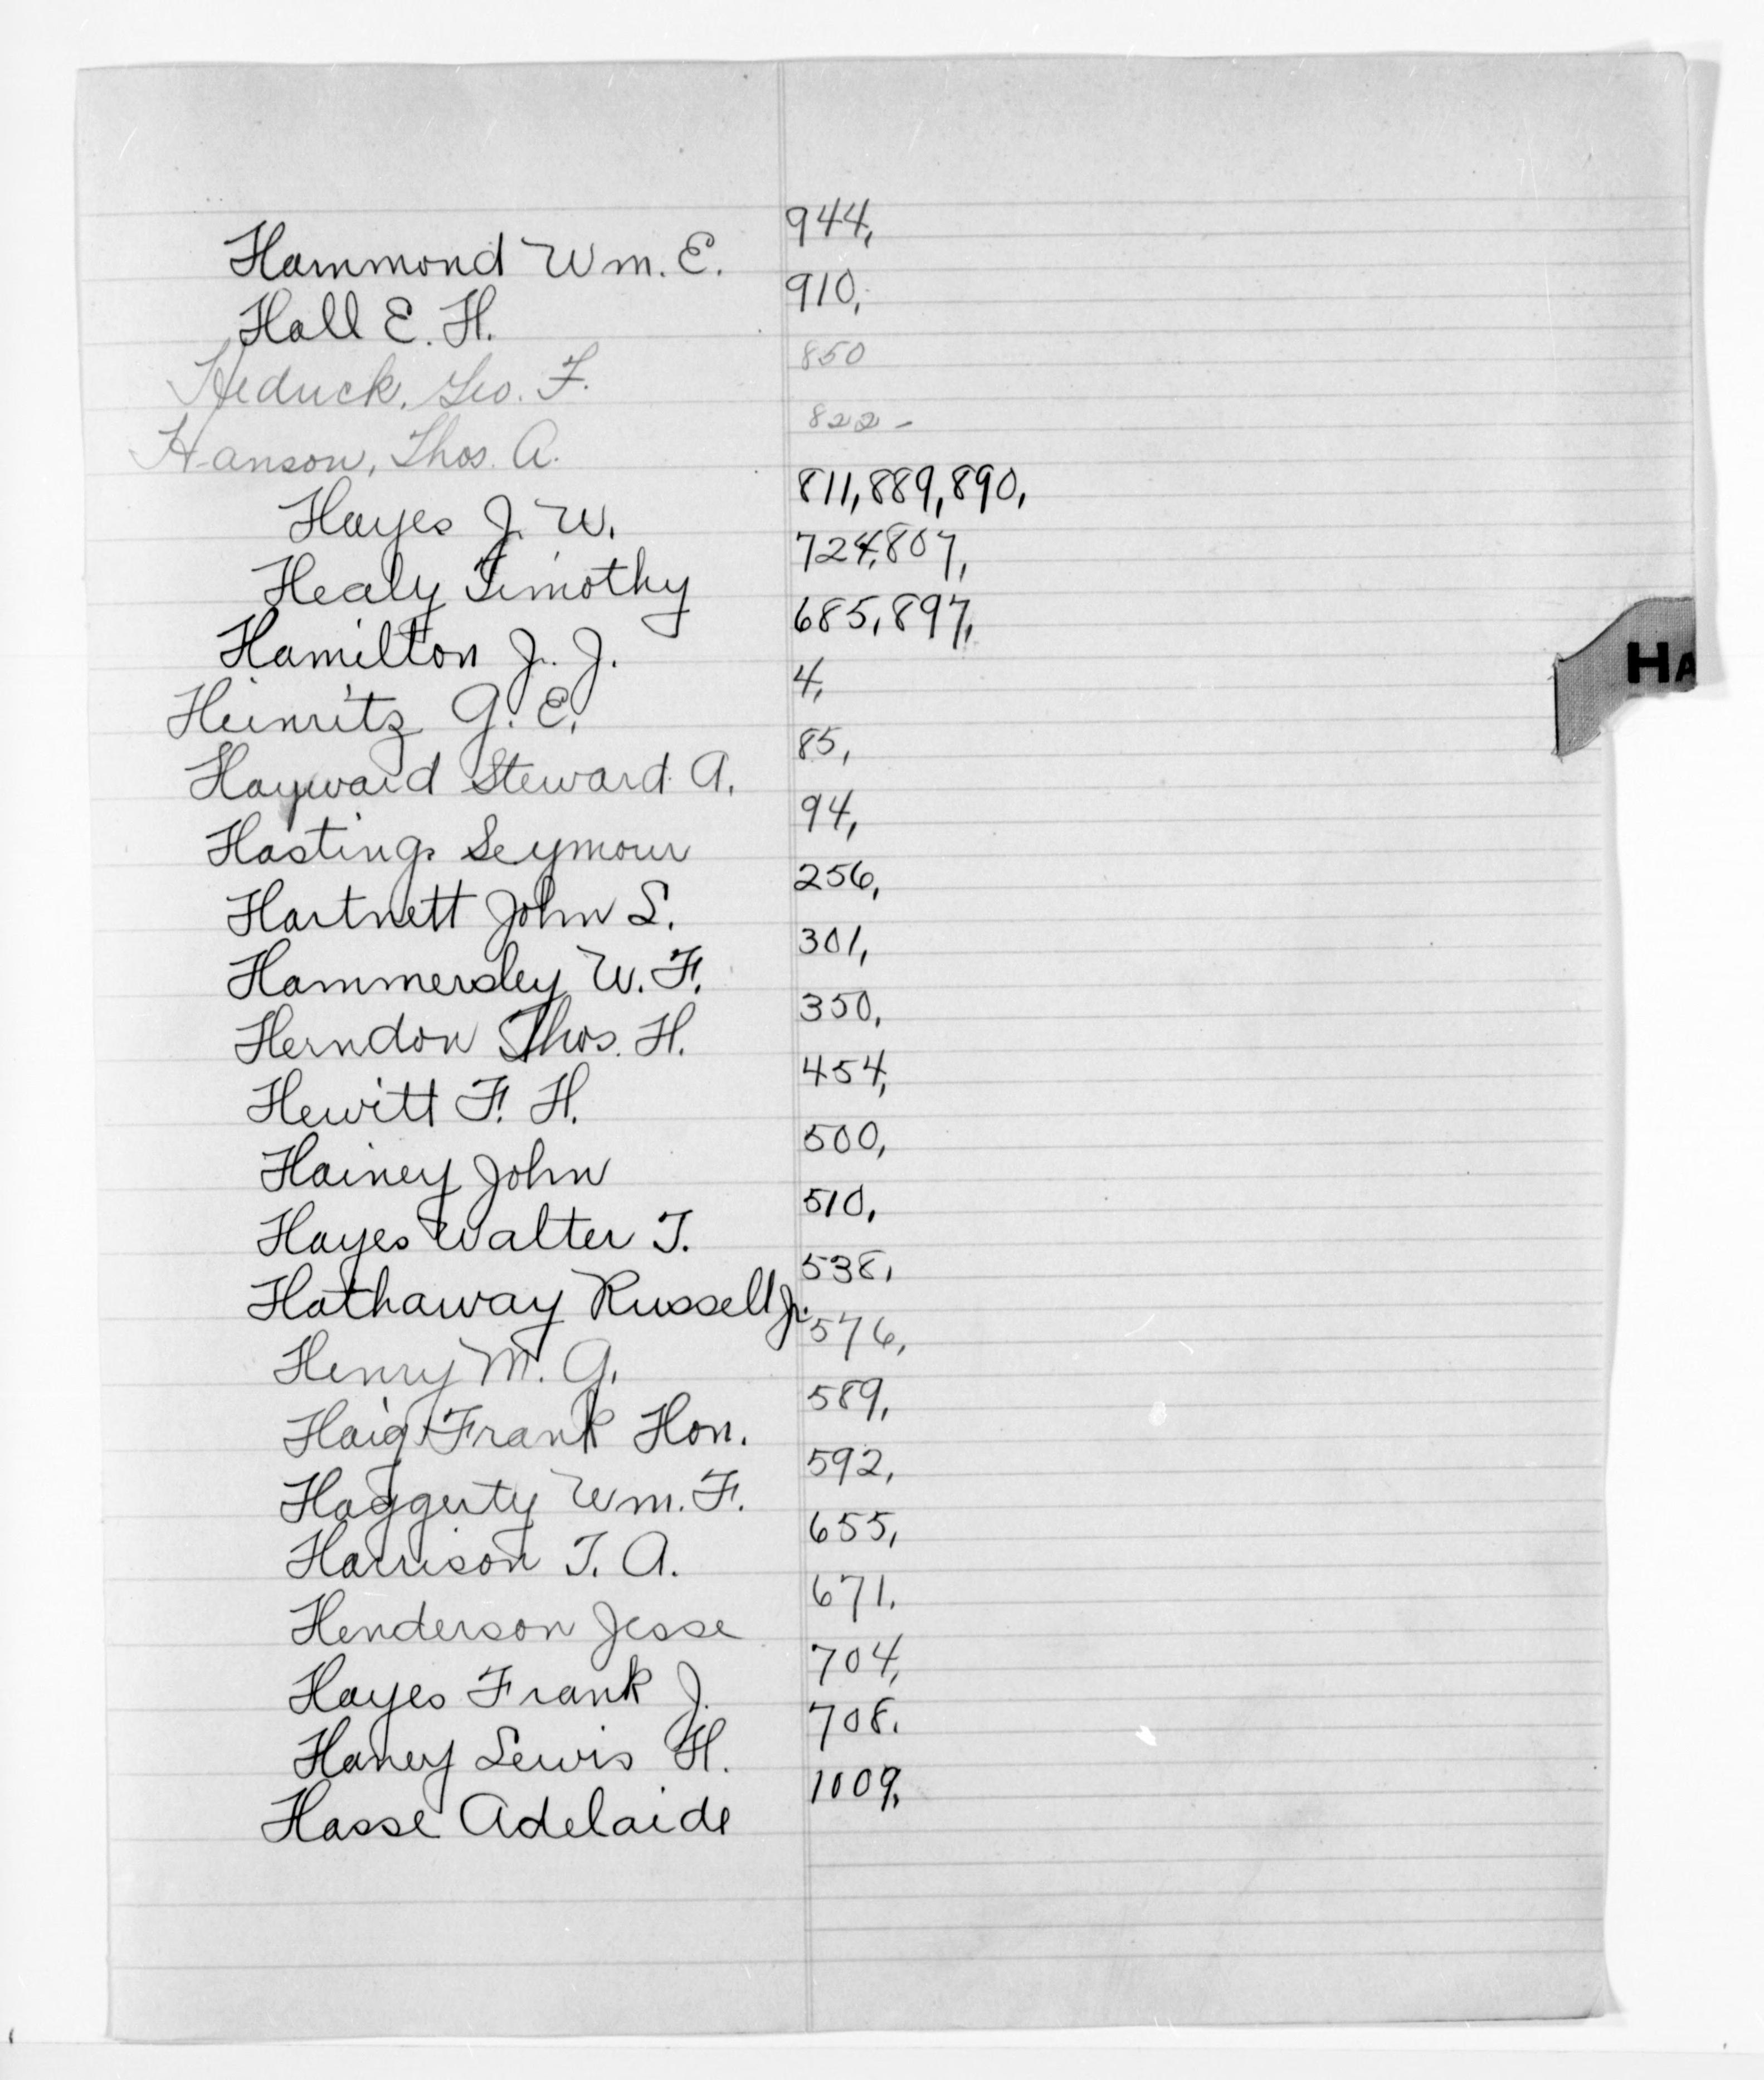 Hammond Wm. E. 944,
Hall E. H. 910,
Heduck, Geo. F. 850
Hanson, Thos. A. 822 -
Hayes J. W. 811, 889, 890,
Healy Timothy 724, 807,
Hamilton J. J. 685, 897,
Heinritz G. E. 4,
Hayward Steward A. 85,
Hastings Seymour 94,
Hartnett John L. 256,
Hammersley W. F. 301,
Herndon Thos. H. 350,
Hewitt F. H. 454,
Hainey John 500,
Hayes Walter T. 510,
Hathaway Russell Jr. 538,
Henry M. G. 576,
Haig Frank Hon. 589,
Haggerty Wm. F. 592,
Harrison T. A. 655,
Henderson Jesse 671,
Hayes Frank J. 704,
Haney Lewis H. 708,
Hasse Adelaide 1009,
HA